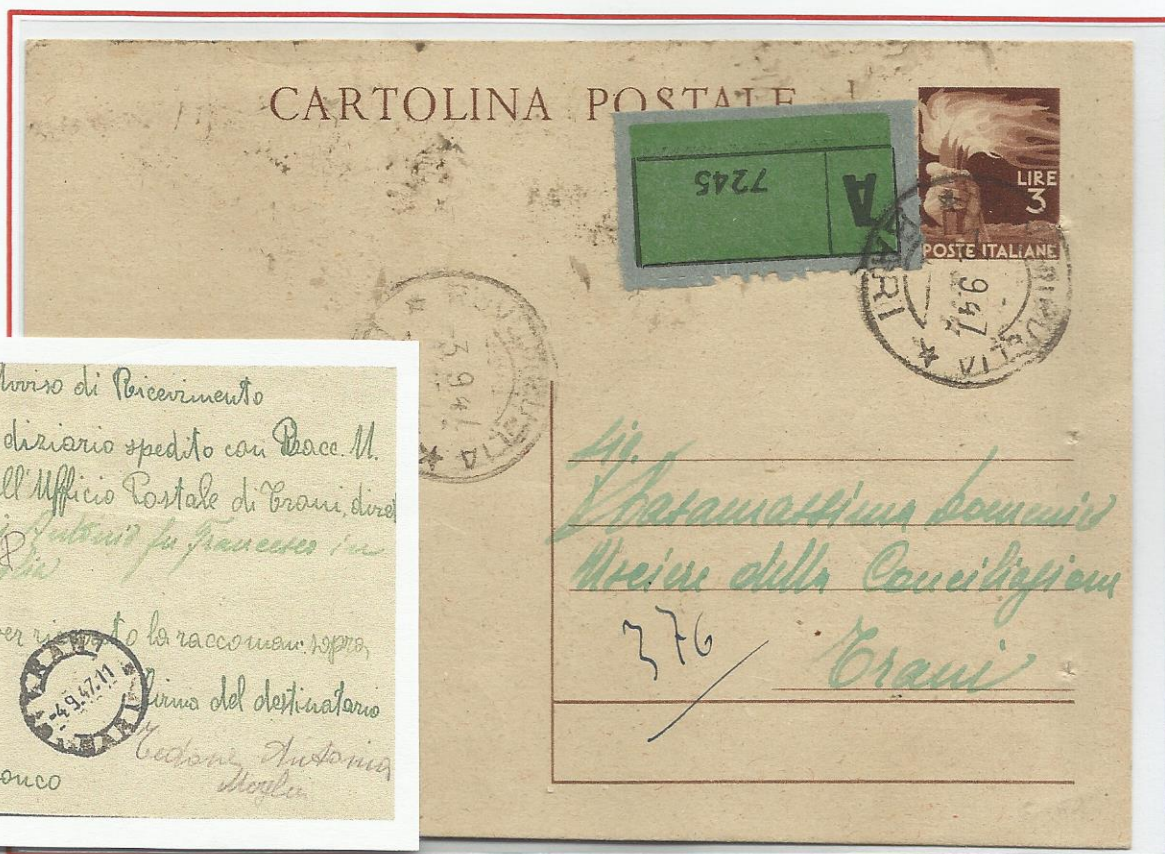 CARTOLINA POSTALE
7245
A
LIRE
3
POSTE ITALIANE
BARI
9.47
-3.9.47
Sig.
Casamassima Domenico
Usciere della Conciliazione
376
Trani
Avviso di Ricevimento
diziario spedito con Racc. N.
ell'Ufficio Postale di Trani, diret
Antonio fu Francesco in
glia
per ricevuto la raccoman. sopra
TRANI
-4.9.47.11
Firma del destinatario
Tedone Antonia
Moglie
onco